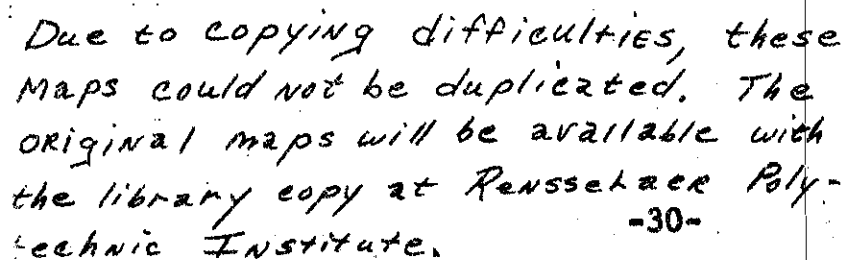 Due to copying difficulties, these
Maps could not be duplicated. The
original maps will be available with
the library copy at Rensselaer Poly-
technic Institute.
-30-